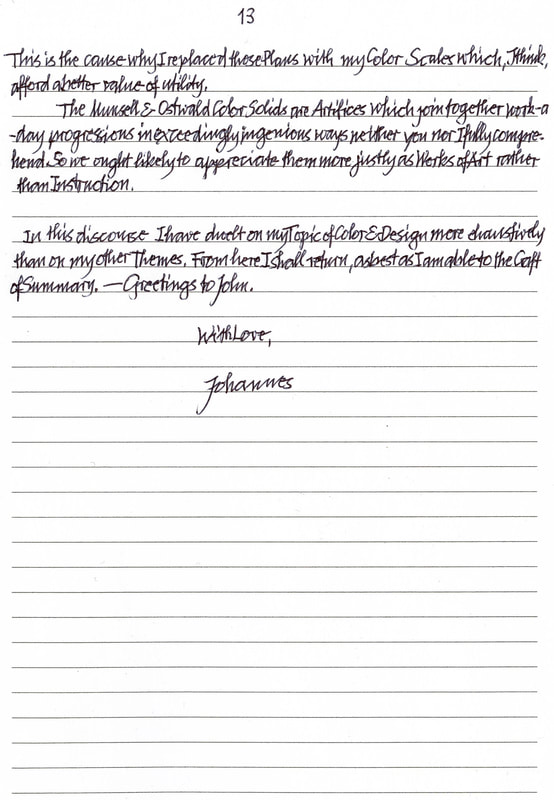 13
This is the cause why I replaced those Plans with my Color Scales which, I think,
afford a better value of utility.
The Munsell & Ostwald Color Solids are Artifices which join together work-a
-day progressions in exceedingly ingenious ways neither you nor I fully compre-
hend. So we ought likely to appreciate them more justly as Works of Art rather
than Instruction.
In this discourse I have dwelt on my Topic of Color & Design more exhaustively
than on my other Themes. From here I shall return, as best as I am able to the Craft
of Summary. — Greetings to John.
With Love,
Johannes